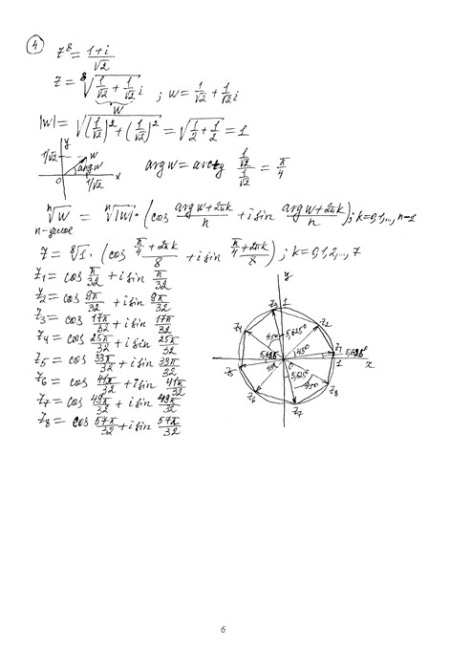 4
z⁸ = (1+i)/√2
z = ⁸√(1/√2 + 1/√2 i) ; w = 1/√2 + 1/√2 i
w
|w| = √((1/√2)² + (1/√2)²) = √(1/2 + 1/2) = 1
y
1/√2 w
arg w
0 1/√2 x
arg w = arctg (1/√2)/(1/√2) = π/4
ⁿ√w = ⁿ√|w| · (cos (arg w + 2πk)/n + i sin (arg w + 2πk)/n) ; k = 0,1,.., n-1
z = ⁸√1 · (cos (π/4 + 2πk)/8 + i sin (π/4 + 2πk)/8) ; k = 0,1,2.., 7
z₁ = cos π/32 + i sin π/32
z₂ = cos 9π/32 + i sin 9π/32
z₃ = cos 17π/32 + i sin 17π/32
z₄ = cos 25π/32 + i sin 25π/32
z₅ = cos 33π/32 + i sin 33π/32
z₆ = cos 41π/32 + i sin 41π/32
z₇ = cos 49π/32 + i sin 49π/32
z₈ = cos 57π/32 + i sin 57π/32
y
z₃ 1
z₄ 5,625° z₂
45° z₁ 5,625°
0 1 x
z₅ 5,625°
z₆ 45° z₈
z₇
6